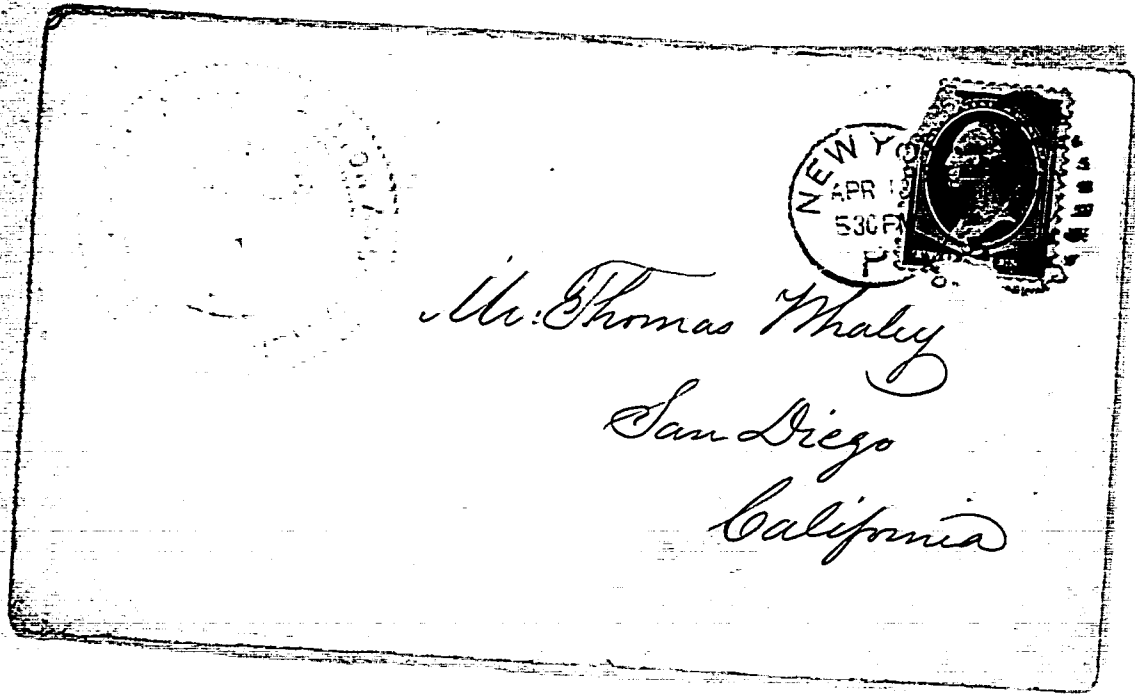 NEW YO
APR
530 PM
P
Mr. Thomas Whaley
San Diego
California